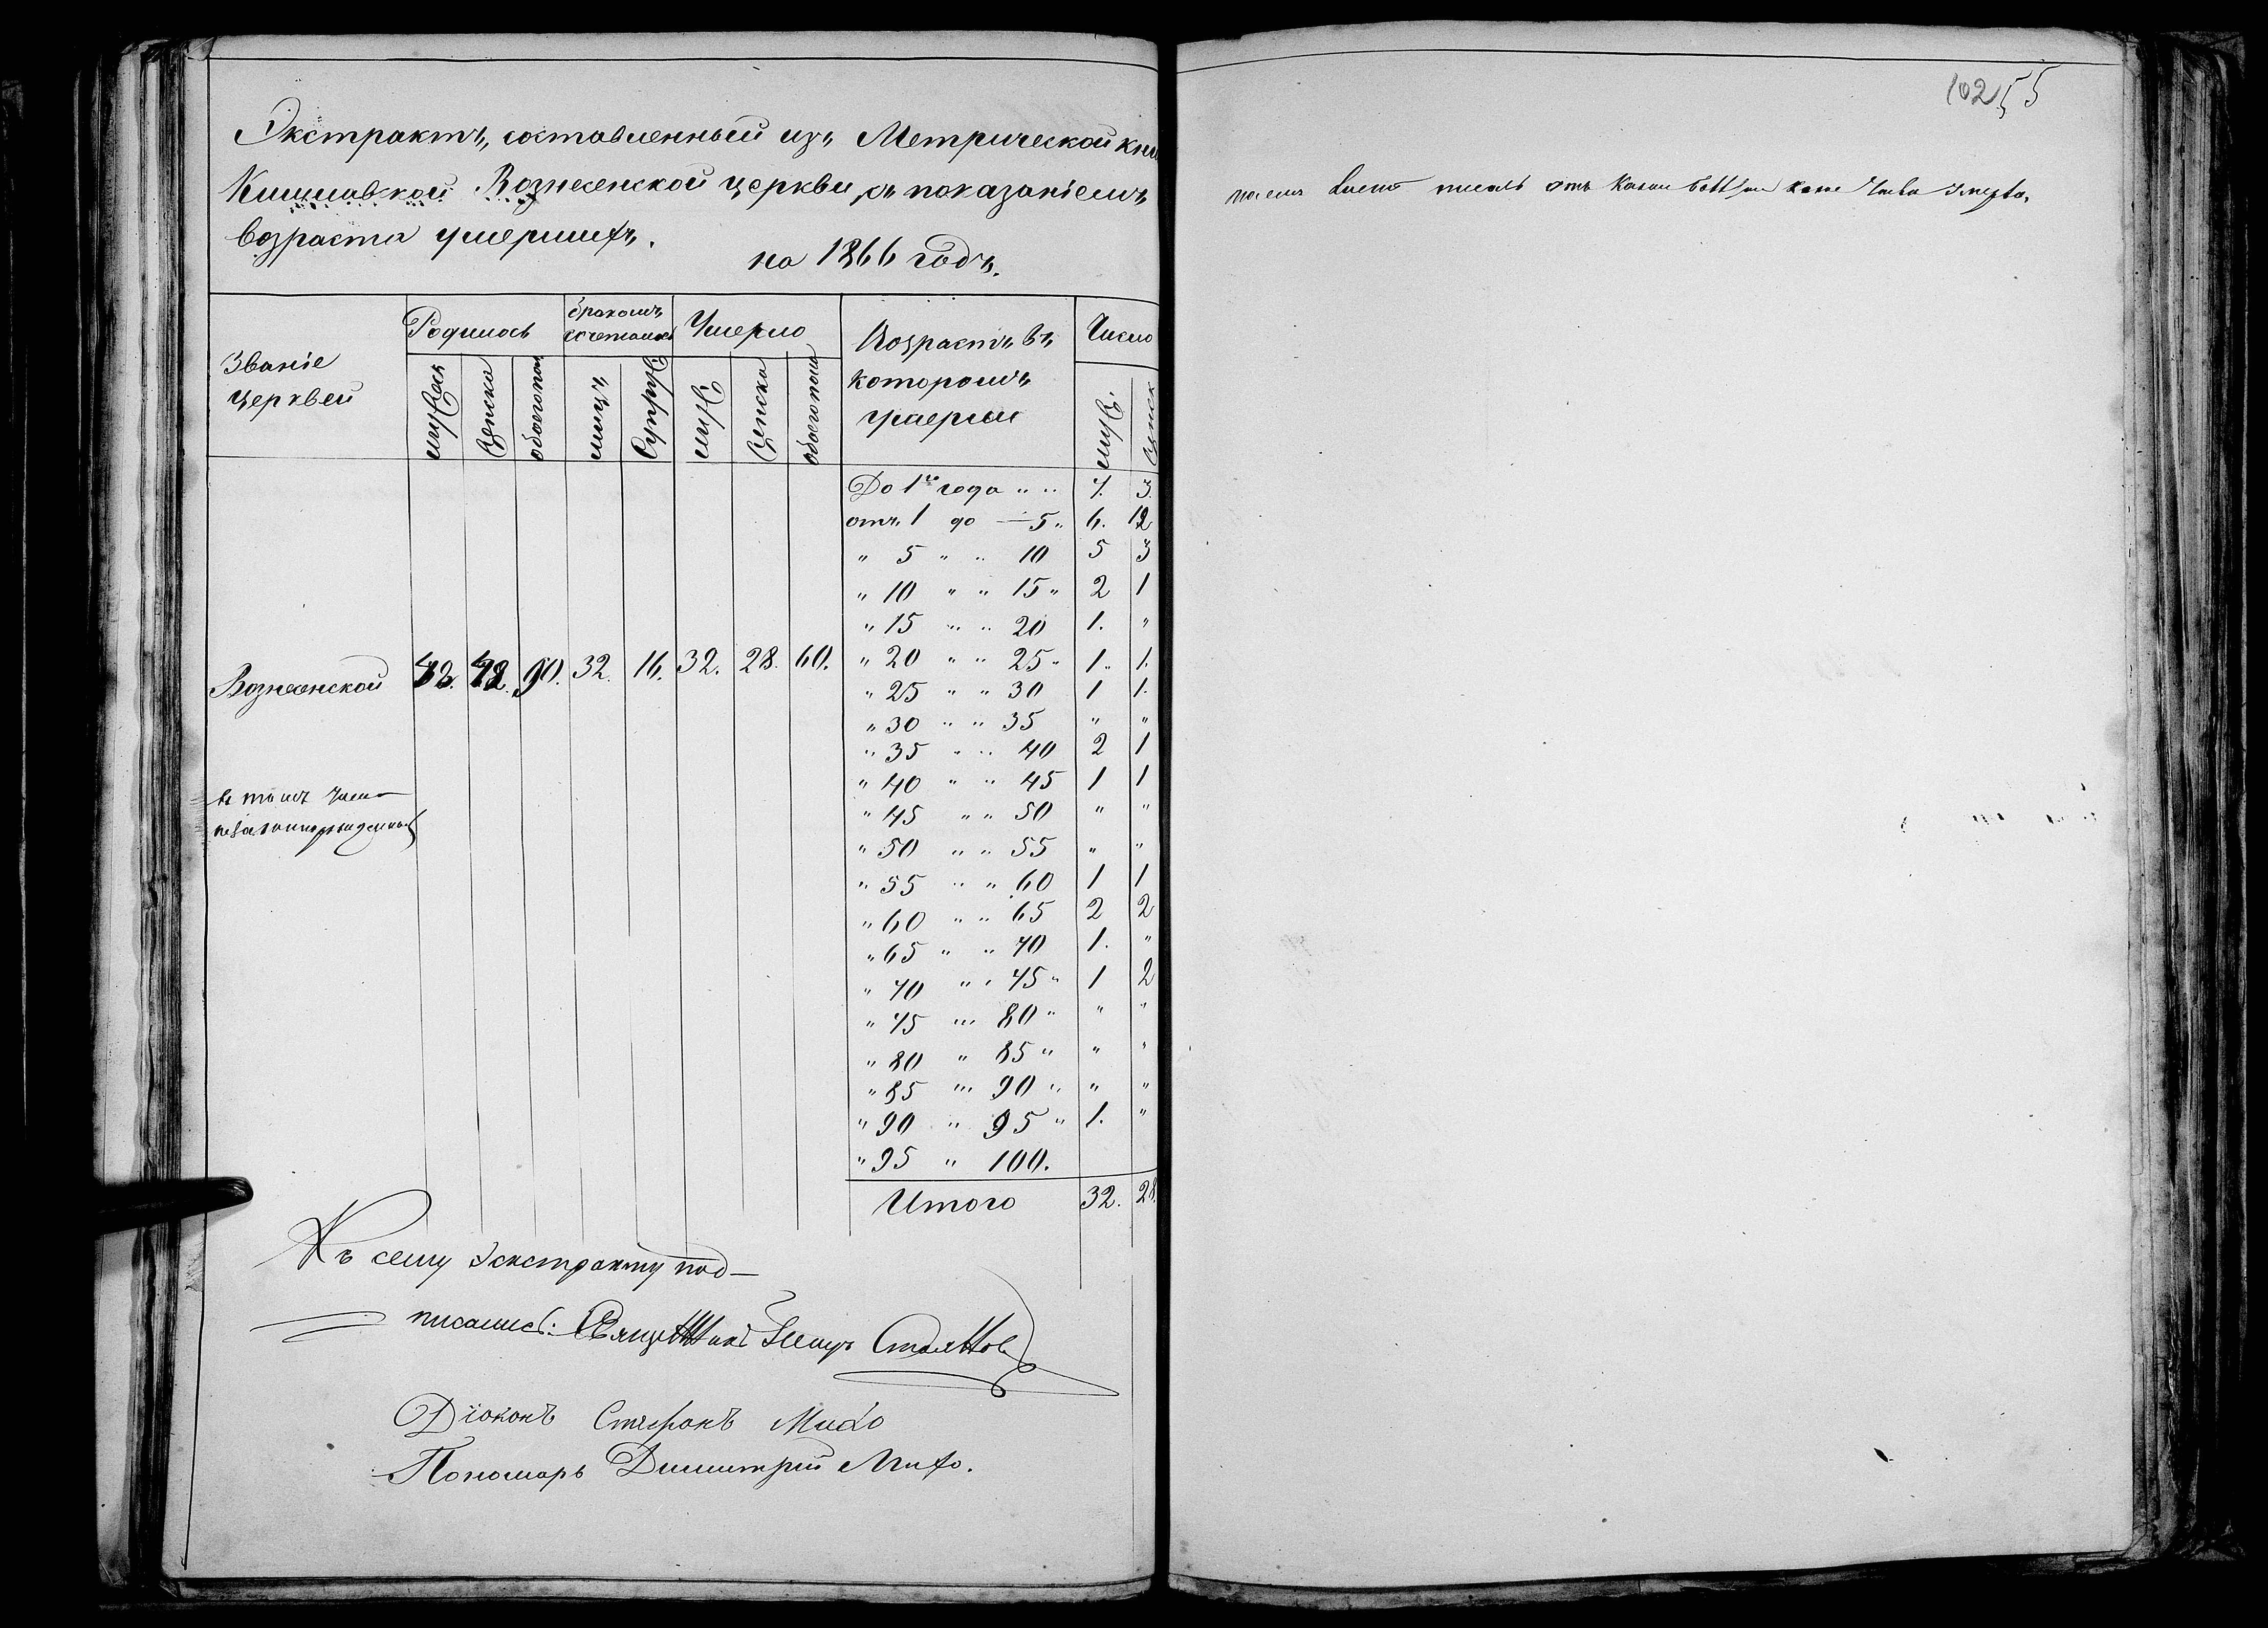 Экстрактъ, составленный изъ Метрической кни
Кишлавской Вознесенской церкви, съ показаніемъ
возраста умершихъ.
на 1866 годъ.
Званіе церквей
Родилось
бракомъ сочеталось
Умерло
Возрастъ въ которомъ умерли
Число
мужеск
женска
обоего пола
лицъ
Супруж
муж
женска
обоего пола
муж.
женск
До 1го года " " 7. 3.
отъ 1 до — 5 " 6. 12
" 5 " " 10 5 3
" 10 " " 15 " 2 1
" 15 " " 20 1. "
Вознесенской 48. 42. 90. 32. 16. 32. 28. 60.
" 20 " " 25 " 1. 1.
" 25 " " 30 1 1.
" 30 " " 35 " "
" 35 " " 40 2 1
" 40 " " 45 1 1
" 45 " " 50 " "
" 50 " " 55 " "
" 55 " " 60 1 1
" 60 " " 65 2 2
" 65 " " 70 1. "
" 70 " " 75 " 1 2
" 75 " " 80 " " "
" 80 " 85 " " "
" 85 " " 90 " " "
" 90 " 95 " 1. "
" 95 " 100.
Итого 32. 28.
въ томъ числе
незаконнорожденных
Къ сему экстракту под—
писались: Священникъ Стоянов
Діаконъ Стефанъ Михо
Пономарь Димитрий Михо.
102 55
писалъ отъ